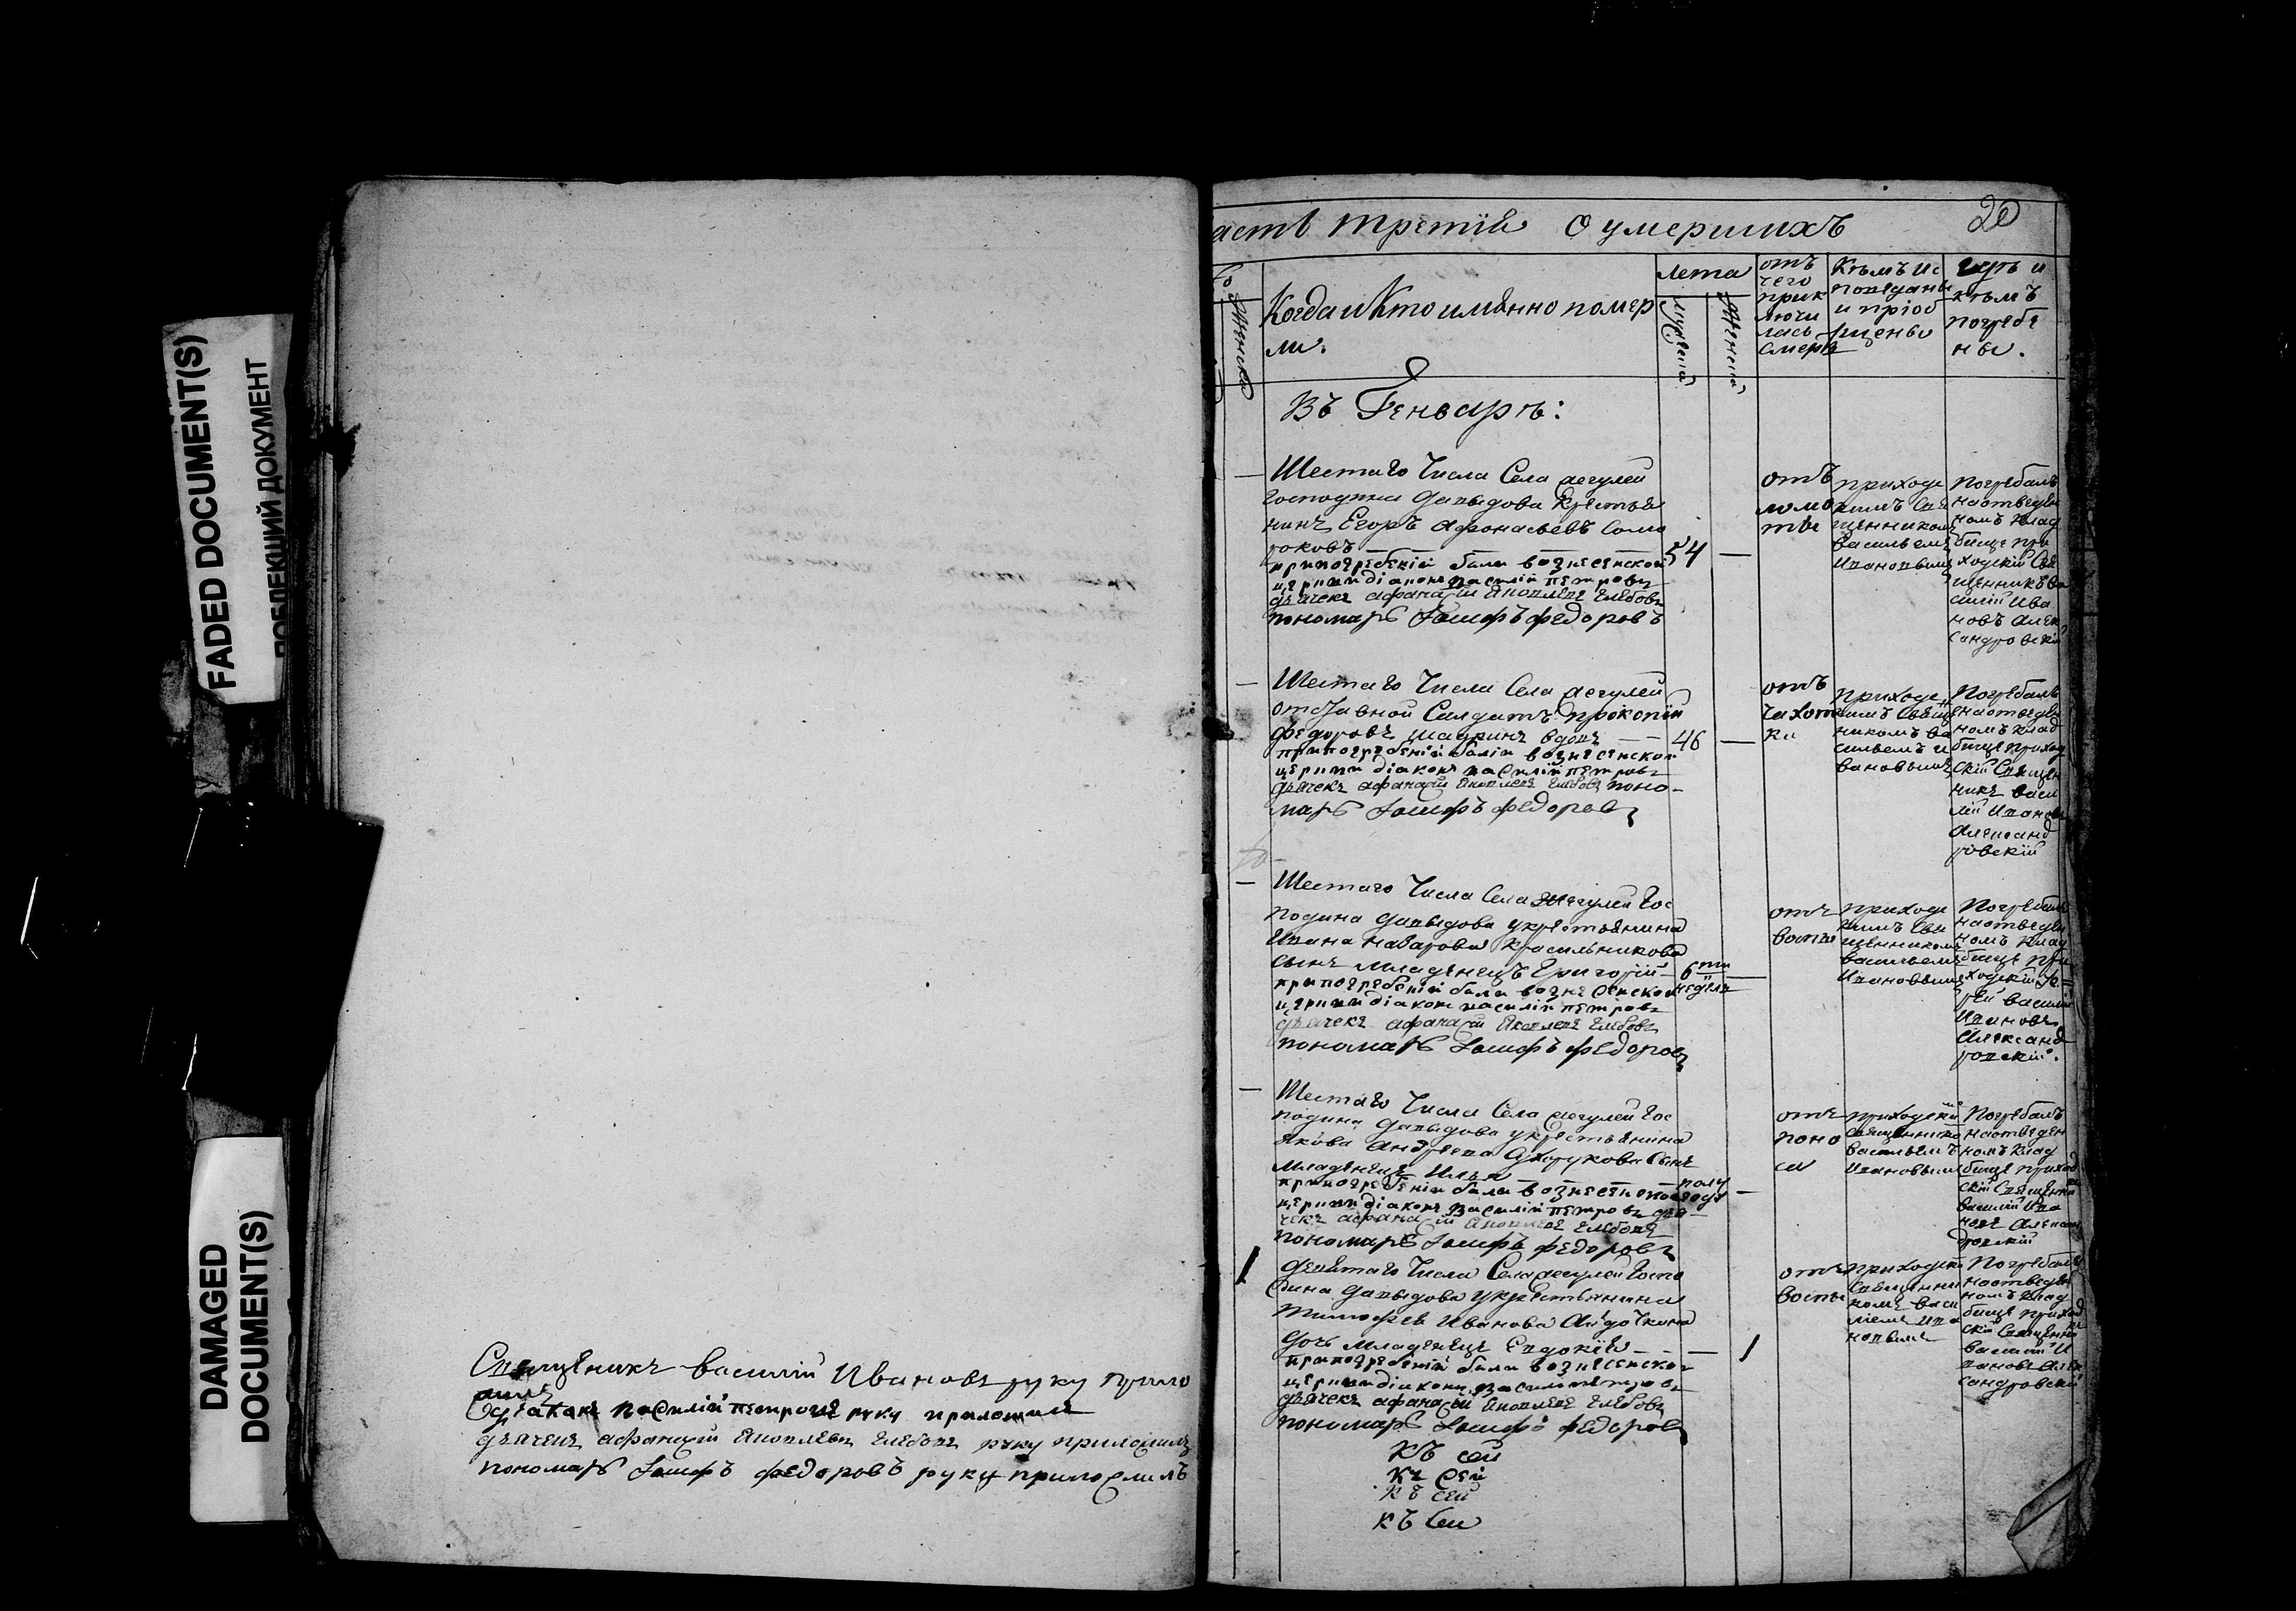 FADED DOCUMENT(S)
ПОБЛЕКШИЙ ДОКУМЕНТ
DAMAGED
DOCUMENT(S)
Священникъ василий Ивановъ руку прило
жилъ
Василий петровъ руку приложилъ
дьячекъ афанасий Яковлевъ Глебовъ руку приложилъ
пономарь Iосифъ федоровъ руку приложилъ
асть третїя о умершихъ
20
Женска
Когда и Кто имянно помер
ли.
лета
мужеска
Женска
отъ
чего
прик
лючи
лась
смерть
Кѣмъ ис
поведаны
и прїоб
щены
гдѣ и
кѣмъ
погребе
ны.
Въ Генварѣ:
Шестаго Числа Села
господина давыдова крестья
нинъ Егоръ афонасьевъ Само
роковъ
54
при погребении были вознесенской
церкви дiаконъ василий петровъ
дьячекъ афанасий Яковлевъ Глебовъ
пономарь Iосифъ федоровъ
отъ
ломо
ты
приходс
кимъ Свя
щенникомъ
васильемъ
Ивановымъ
Погребалъ
на отведен
номъ клад
бище при
ходский Свя
щенникъ ва
силий Ива
новъ Алек
сандровский
Шестаго Числа Села
отставной Салдатъ прокопий
федоровъ вдовъ
46
при погребении были вознесенской
церкви дiаконъ василий петровъ
дьячекъ афанасий Яковлевъ Глебовъ поно-
марь Iосифъ федоровъ
отъ
чахот
ки
приходс
кимъ Свяще
никомъ ва
сильемъ и
вановымъ
Погребалъ
на отведен
номъ клад
бище приход
ский Священ
никъ васи
лий Ивановъ
Александ
ровский
Шестаго Числа Села Гос
подина давыдова у крестьянина
Ивана назарова Красильникова
сынъ младенецъ Григорий
6ти
недель
при погребении были вознесенской
церкви дiаконъ василий петровъ
дьячекъ афанасий Яковлевъ Глебовъ
пономарь Iосифъ федоровъ
отъ
воспы
приходс
кимъ Свя
щенникомъ
васильемъ
Ивановымъ
Погребалъ
на отведен
номъ клад
бище при
ходский Iе=
рей василий
Ивановъ
Александ
ровский.
Шестаго Числа Села Гос
подина давыдова у крестьянина
Якова Андреева Сухорукова Сынъ
младенецъ Илья
полу
года
при погребении были вознесенской
церкви дiаконъ василий петровъ дья-
чекъ афанасий Яковлевъ Глебовъ
пономарь Iосифъ федоровъ
отъ
поно
са
приходским
священнико
васильемъ
Ивановымъ
Погребалъ
на отведен
номъ клад
бище приход
ский Священни
василий Ива
новъ Алексан
дровский
1
девятаго Числа Села Госпо
дина давыдова у крестьянина
Тимофея Иванова
дочь младенецъ Евдокия
1
при погребении были вознесенской
церкви дiаконъ василий петровъ
дьячекъ афанасий Яковлевъ Глебовъ
пономарь Iосифъ федоровъ
отъ
воспы
приходски
священни
комъ васи
лиемъ Ива
новымъ
Погребалъ
на отведен
номъ клад
бище приход
ский Священни
василий И
вановъ Алек
сандровский
Къ сей
Къ сей
Къ сей
Къ сей